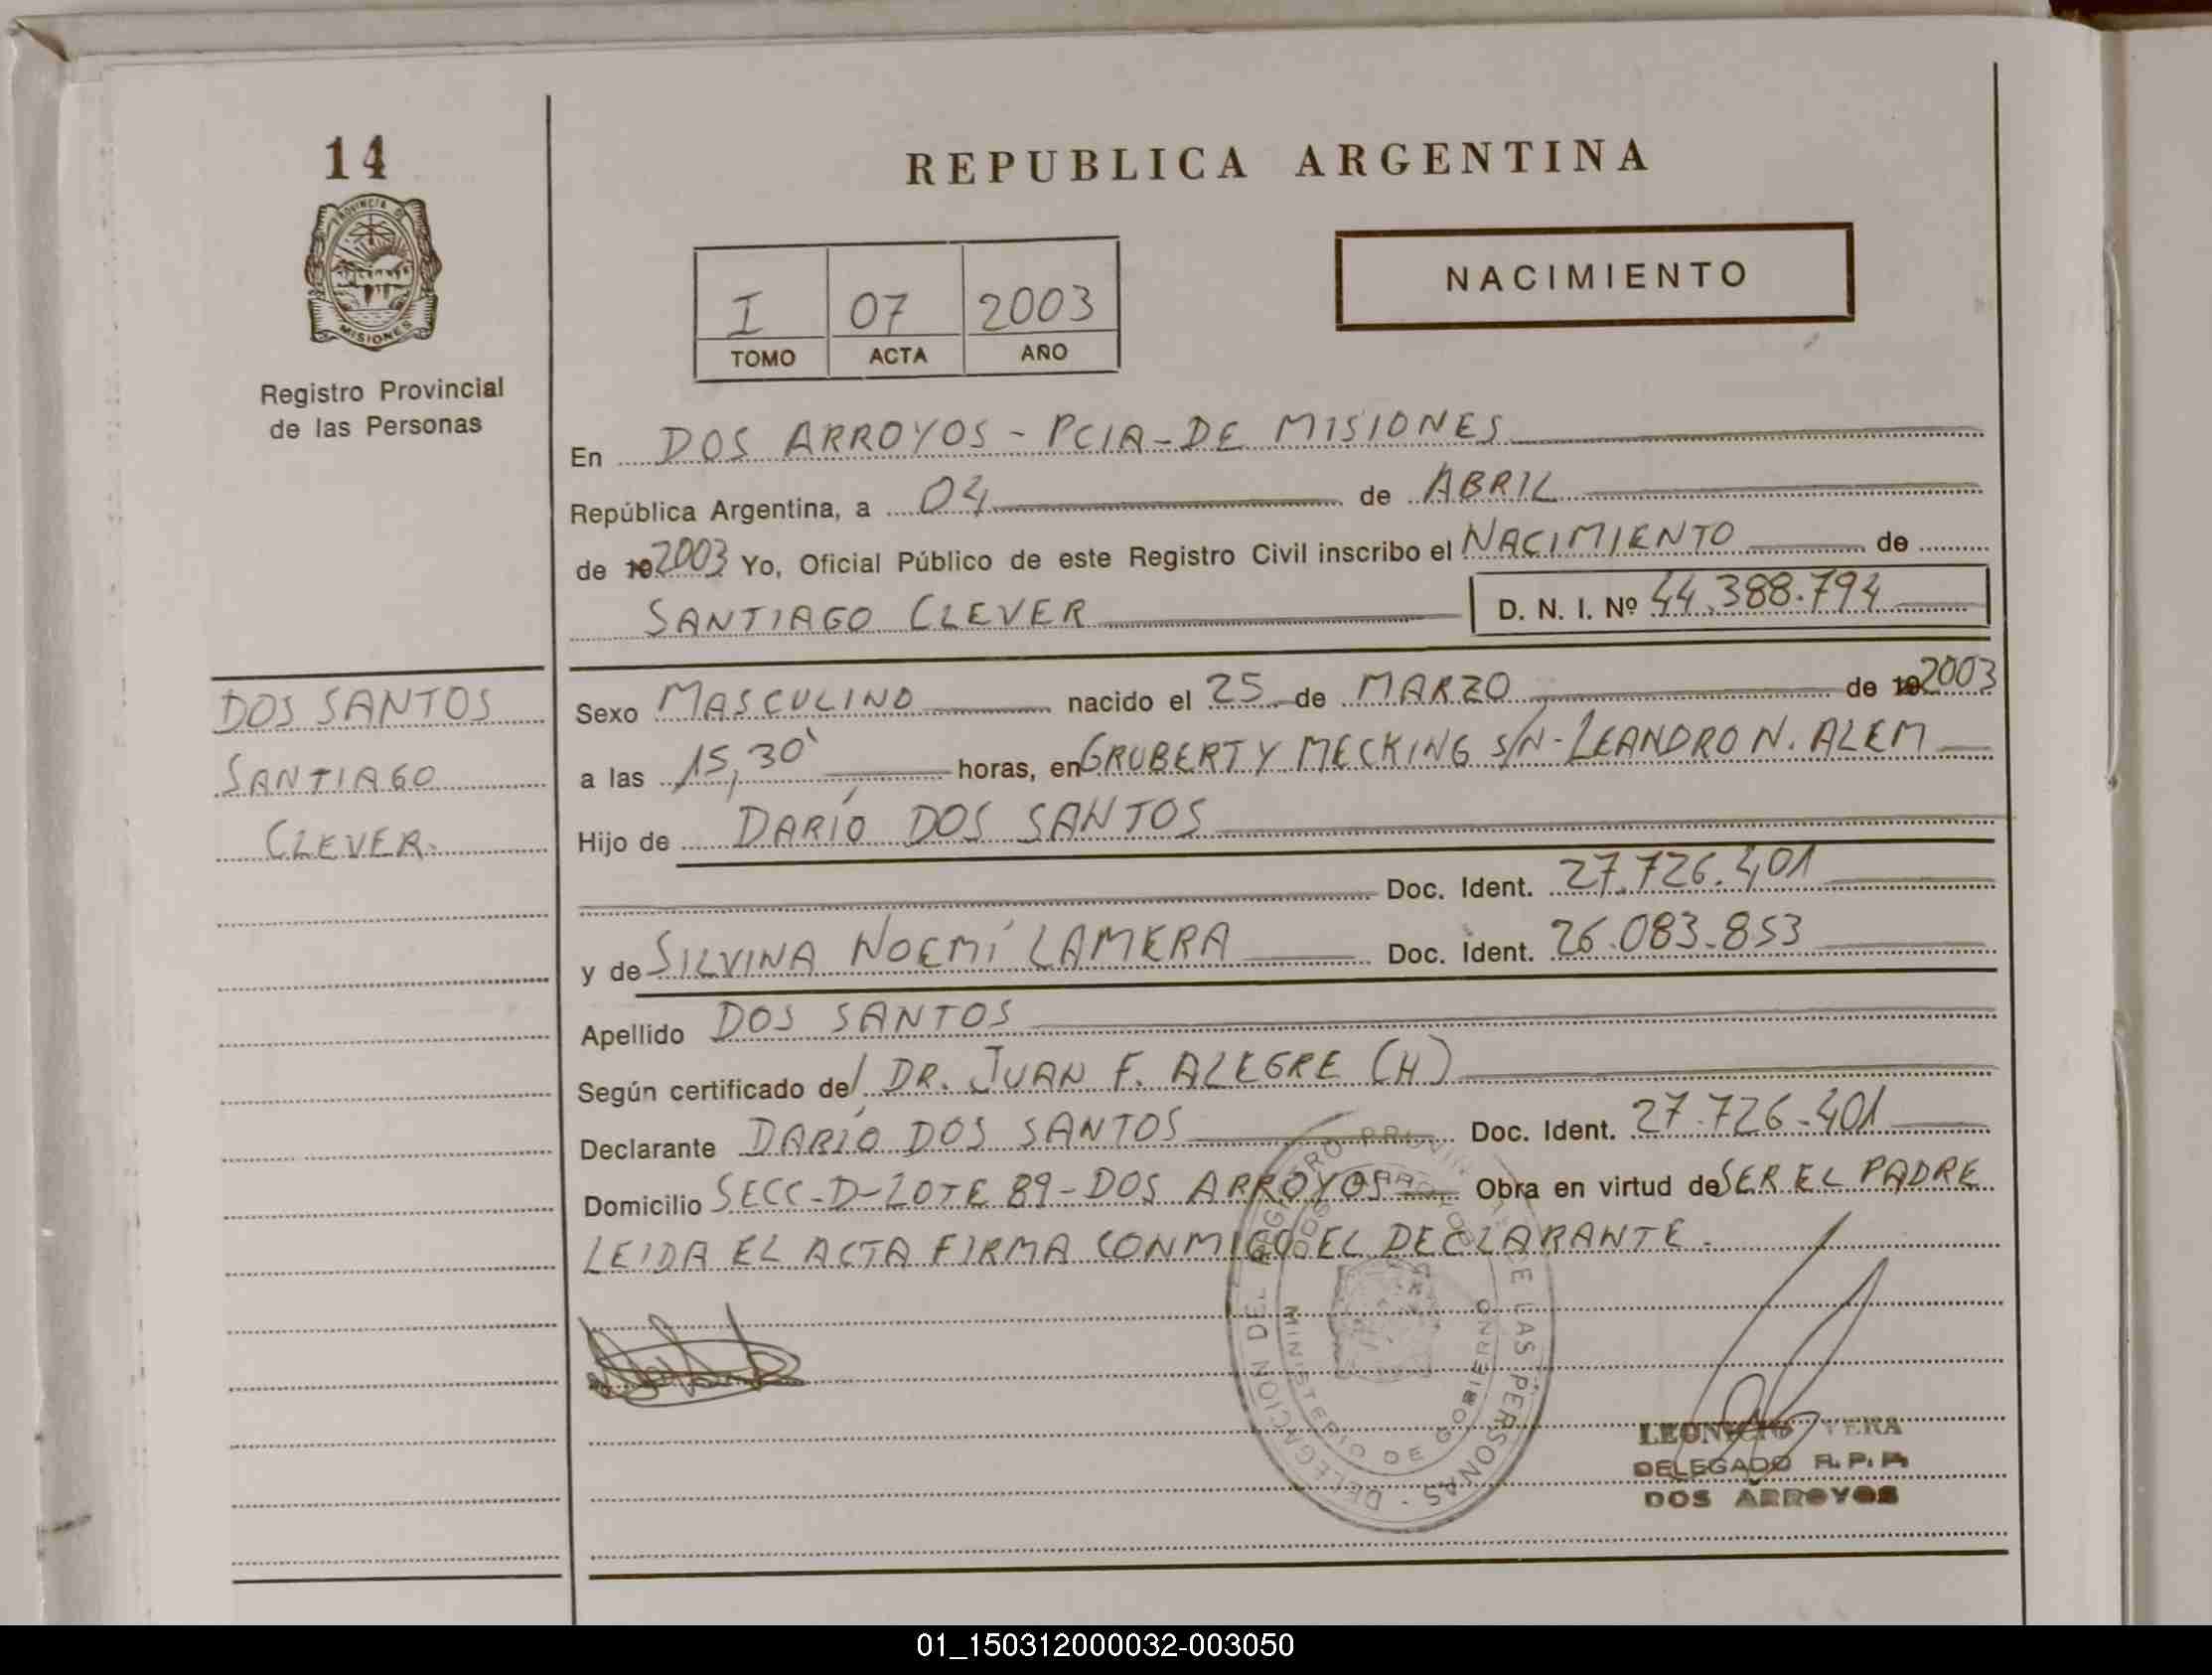 14
PROVINCIA DE
MISIONES
Registro Provincial
de las Personas
REPUBLICA ARGENTINA
NACIMIENTO
I 07 2003
TOMO ACTA AÑO
En DOS ARROYOS - PCIA - DE MISIONES
República Argentina, a 04 de ABRIL
de 19 2003 Yo, Oficial Público de este Registro Civil inscribo el NACIMIENTO de
SANTIAGO CLEVER D. N. I. Nº 44.388.794
DOS SANTOS
SANTIAGO
CLEVER.
Sexo MASCULINO nacido el 25 de MARZO de 19 2003
a las 15,30' horas, en GRUBERT Y MECKING S/N - LEANDRO N. ALEM
Hijo de DARÍO DOS SANTOS
Doc. Ident. 27.726.401
y de SILVINA NOEMÍ LAMERA Doc. Ident. 26.083.853
Apellido DOS SANTOS
Según certificado de/ DR. JUAN F. ALEGRE (H)
Declarante DARÍO DOS SANTOS Doc. Ident. 27.726.401
Domicilio SECC - D - LOTE 89 - DOS ARROYOS Obra en virtud de SER EL PADRE
LEIDA EL ACTA FIRMA CONMIGO EL DECLARANTE.
DELEGACION DEL REGISTRO PROVINCIAL DE LAS PERSONAS -
DOS ARROYOS
MINISTERIO DE GOBIERNO
VERA
DELEGADO R. P. P.
DOS ARROYOS
01_150312000032-003050